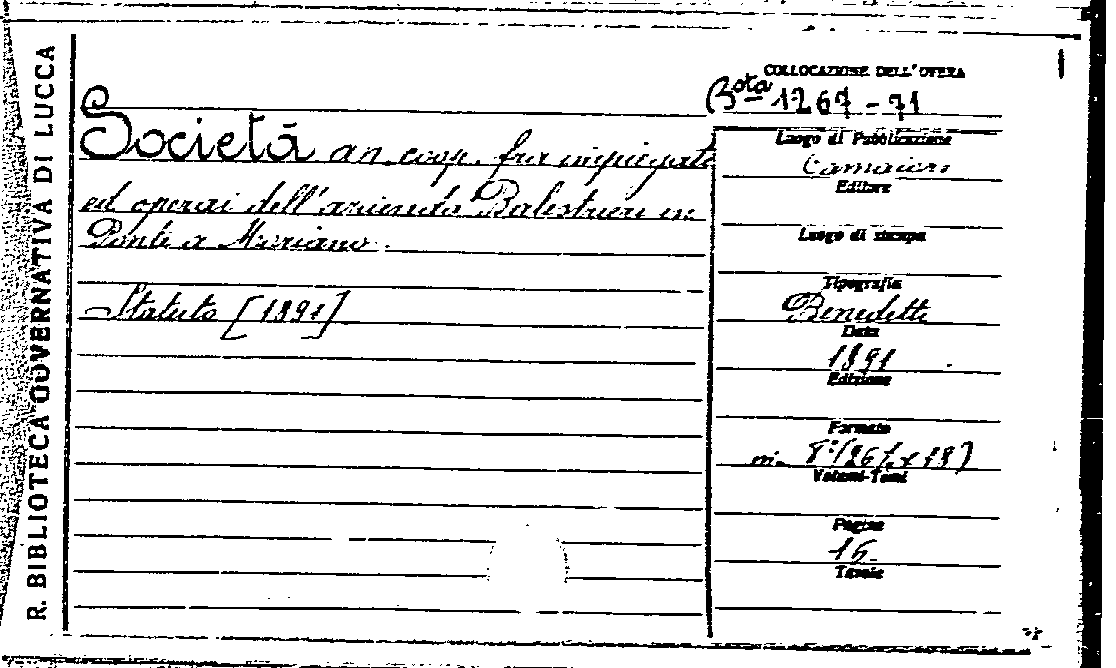 R. BIBLIOTECA GOVERNATIVA DI LUCCA
COLLOCAZIONE DELL'OPERA
Bta 1267-71
Società an. coop. fra impiegati
ed operai dell'azienda Balestrieri in
Ponte a Moriano.
Statuto [1891]
Luogo di Pubblicazione
Camaiore
Editore
Luogo di stampa
Tipografia
Benedetti
Data
1891
Edizione
Formato
in- 8º (26 x 19)
Volumi-Tomi
Pagine
16
Tavole